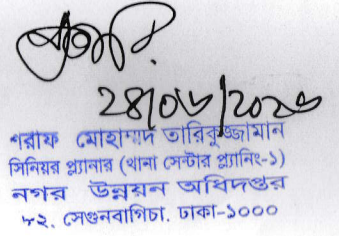 শরীফ মোহাম্মদ তারিকুজ্জামান
সিনিয়র প্ল্যানার (থানা সেন্টার প্ল্যানিং-১)
নগর উন্নয়ন অধিদপ্তর
৮২, সেগুনবাগিচা, ঢাকা-১০০০